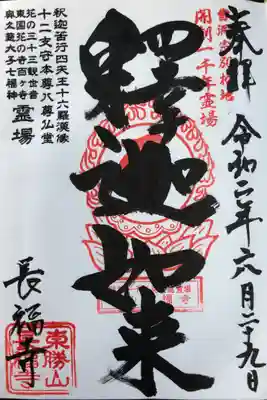 奉拝 令和二年六月二十九日
曹洞宗別格地
開創一千年霊場
釋迦如来
釈迦苦行四天王十六羅漢像
十二支守本尊八尊仏堂
花の三十三観世音
東国花の寺百ヶ寺
奥久慈大子七福神
霊場
長福寺
東勝山